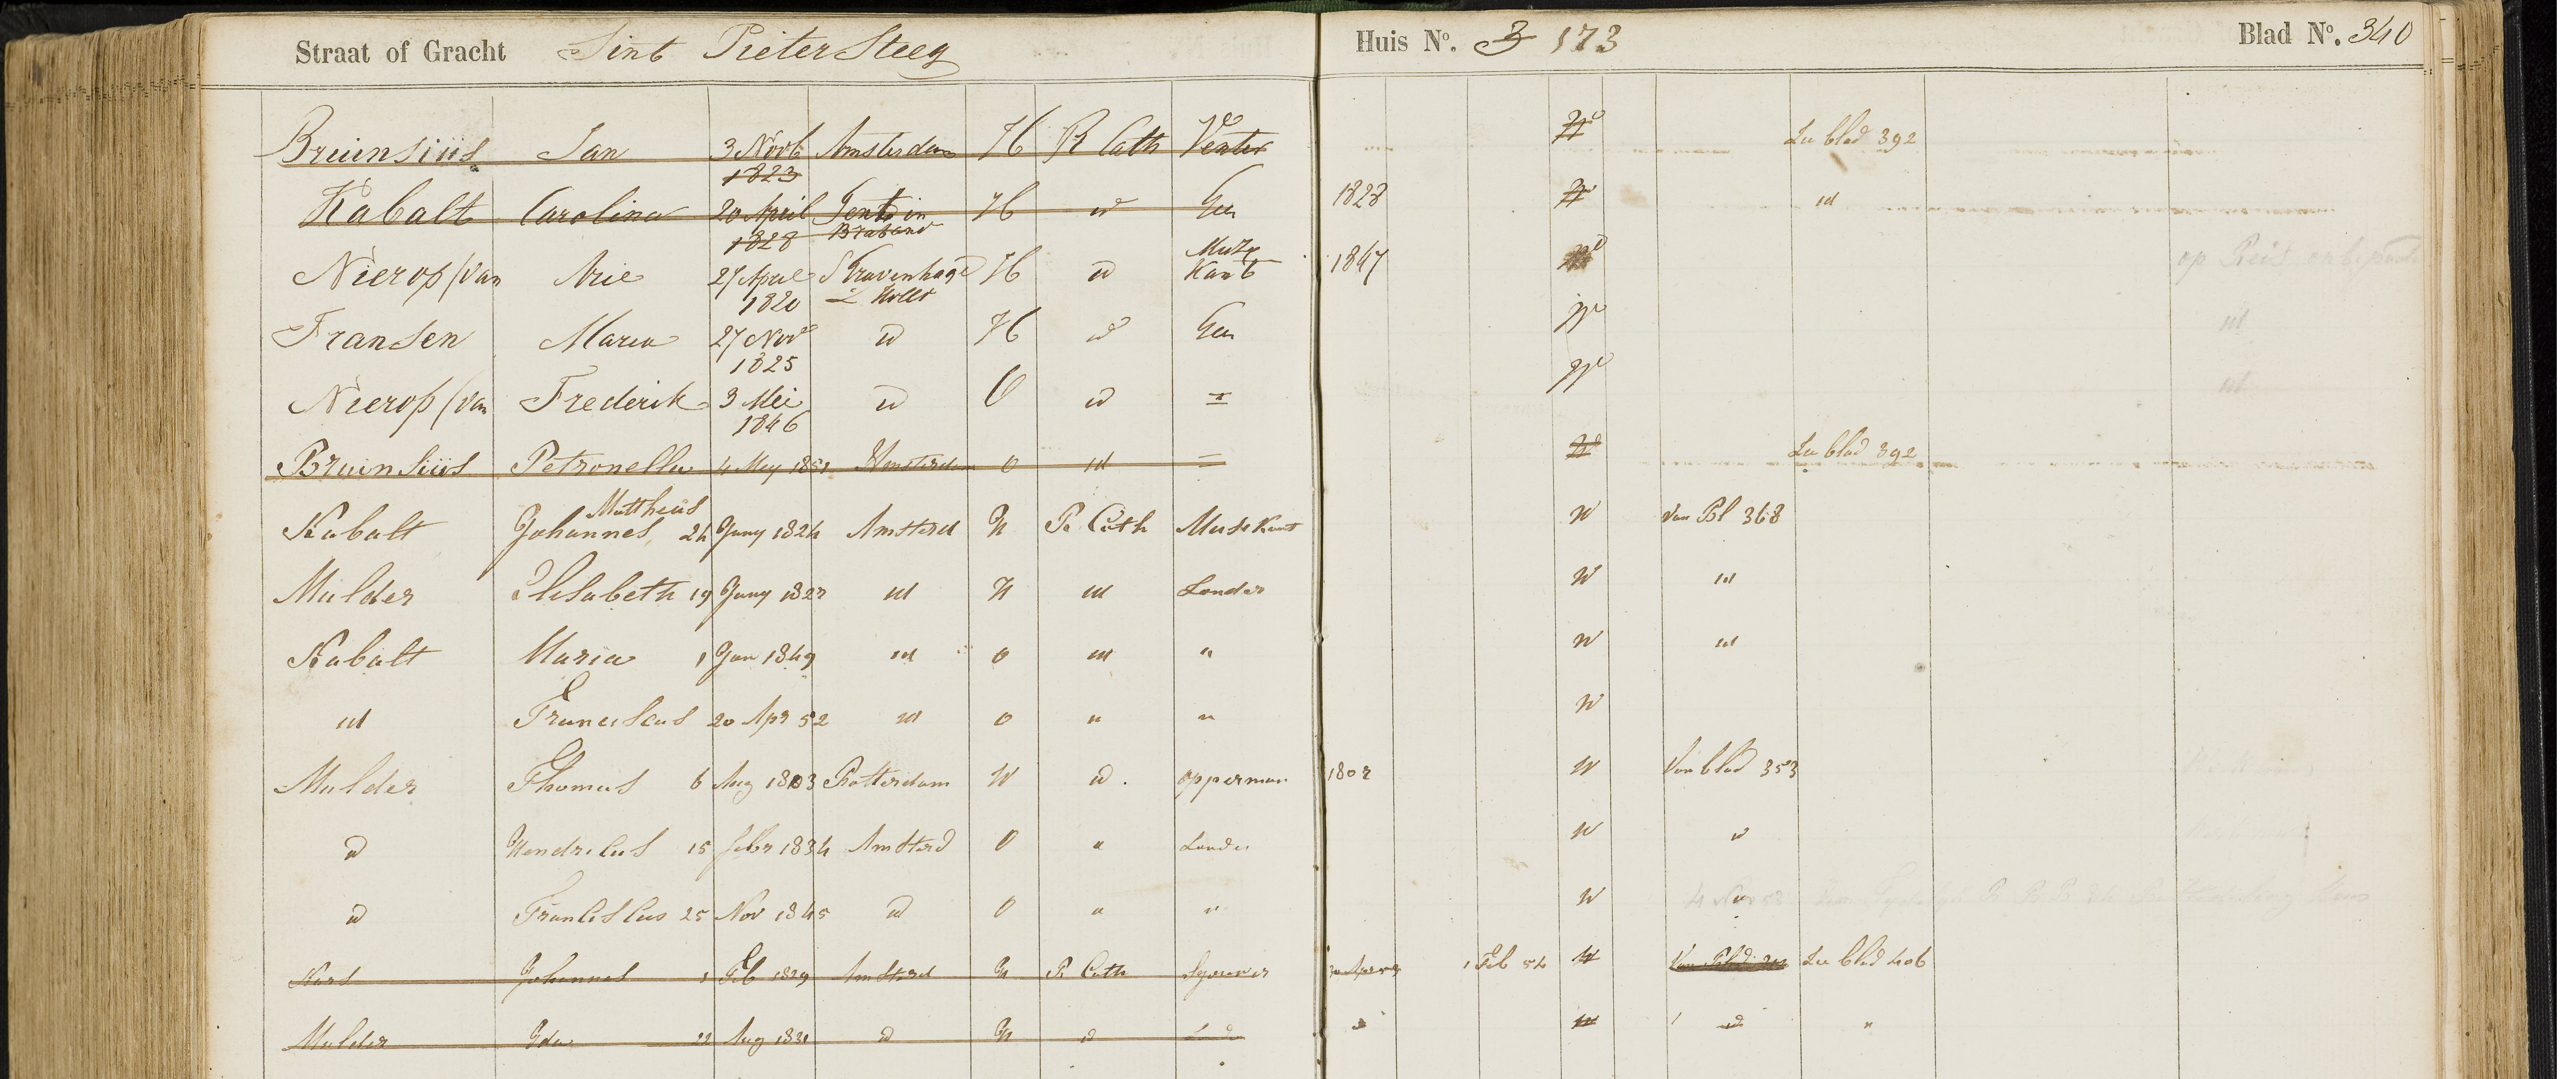 Straat of Gracht Sint Pieter Steeg Huis No. 3 173 Blad No. 340
Bruinsius Jan 3 Novb 1823 Amsterdam H R Cath Venter Zie blad 392
Kabalt Carolina 20 April 1828 Gent in Braband H id Geen 1828 id
Nierop (van Arie 27 April 1820 S Gravenhage Z Holld H id Muzikant 1847 op Reis
Fransen Maria 27 Nov 1825 id H id Geen id
Nierop (van Frederik 3 Mei 1846 id O id = id
Bruinsius Petronella 4 May 1851 Amsterdam O id = Zie blad 392
Kabalt Johannes Mattheus 24 Juny 1824 Amsterd H R Cath Musikant W Van Bl 368
Mulder Elisabeth 19 Juny 1827 id H id Zonder W id
Kabalt Maria 1 Jan 1849 id O id " W id
id Franciscus 20 Apr 52 id O " " W
Mulder Thomas 6 Aug 1803 Rotterdam W id. opperman 1802 W Van blad 353
id Hendricus 15 Febr 1834 Amsterd O " Zonder W id
id Franciscus 25 Nov 1845 id O " " W id
Kars Johannes 1 Feb 1829 Amsterd H R Cath 1 Feb 54 W Van Blad Zie blad 406
Mulder Ida 22 Aug 1831 id H id id W id "